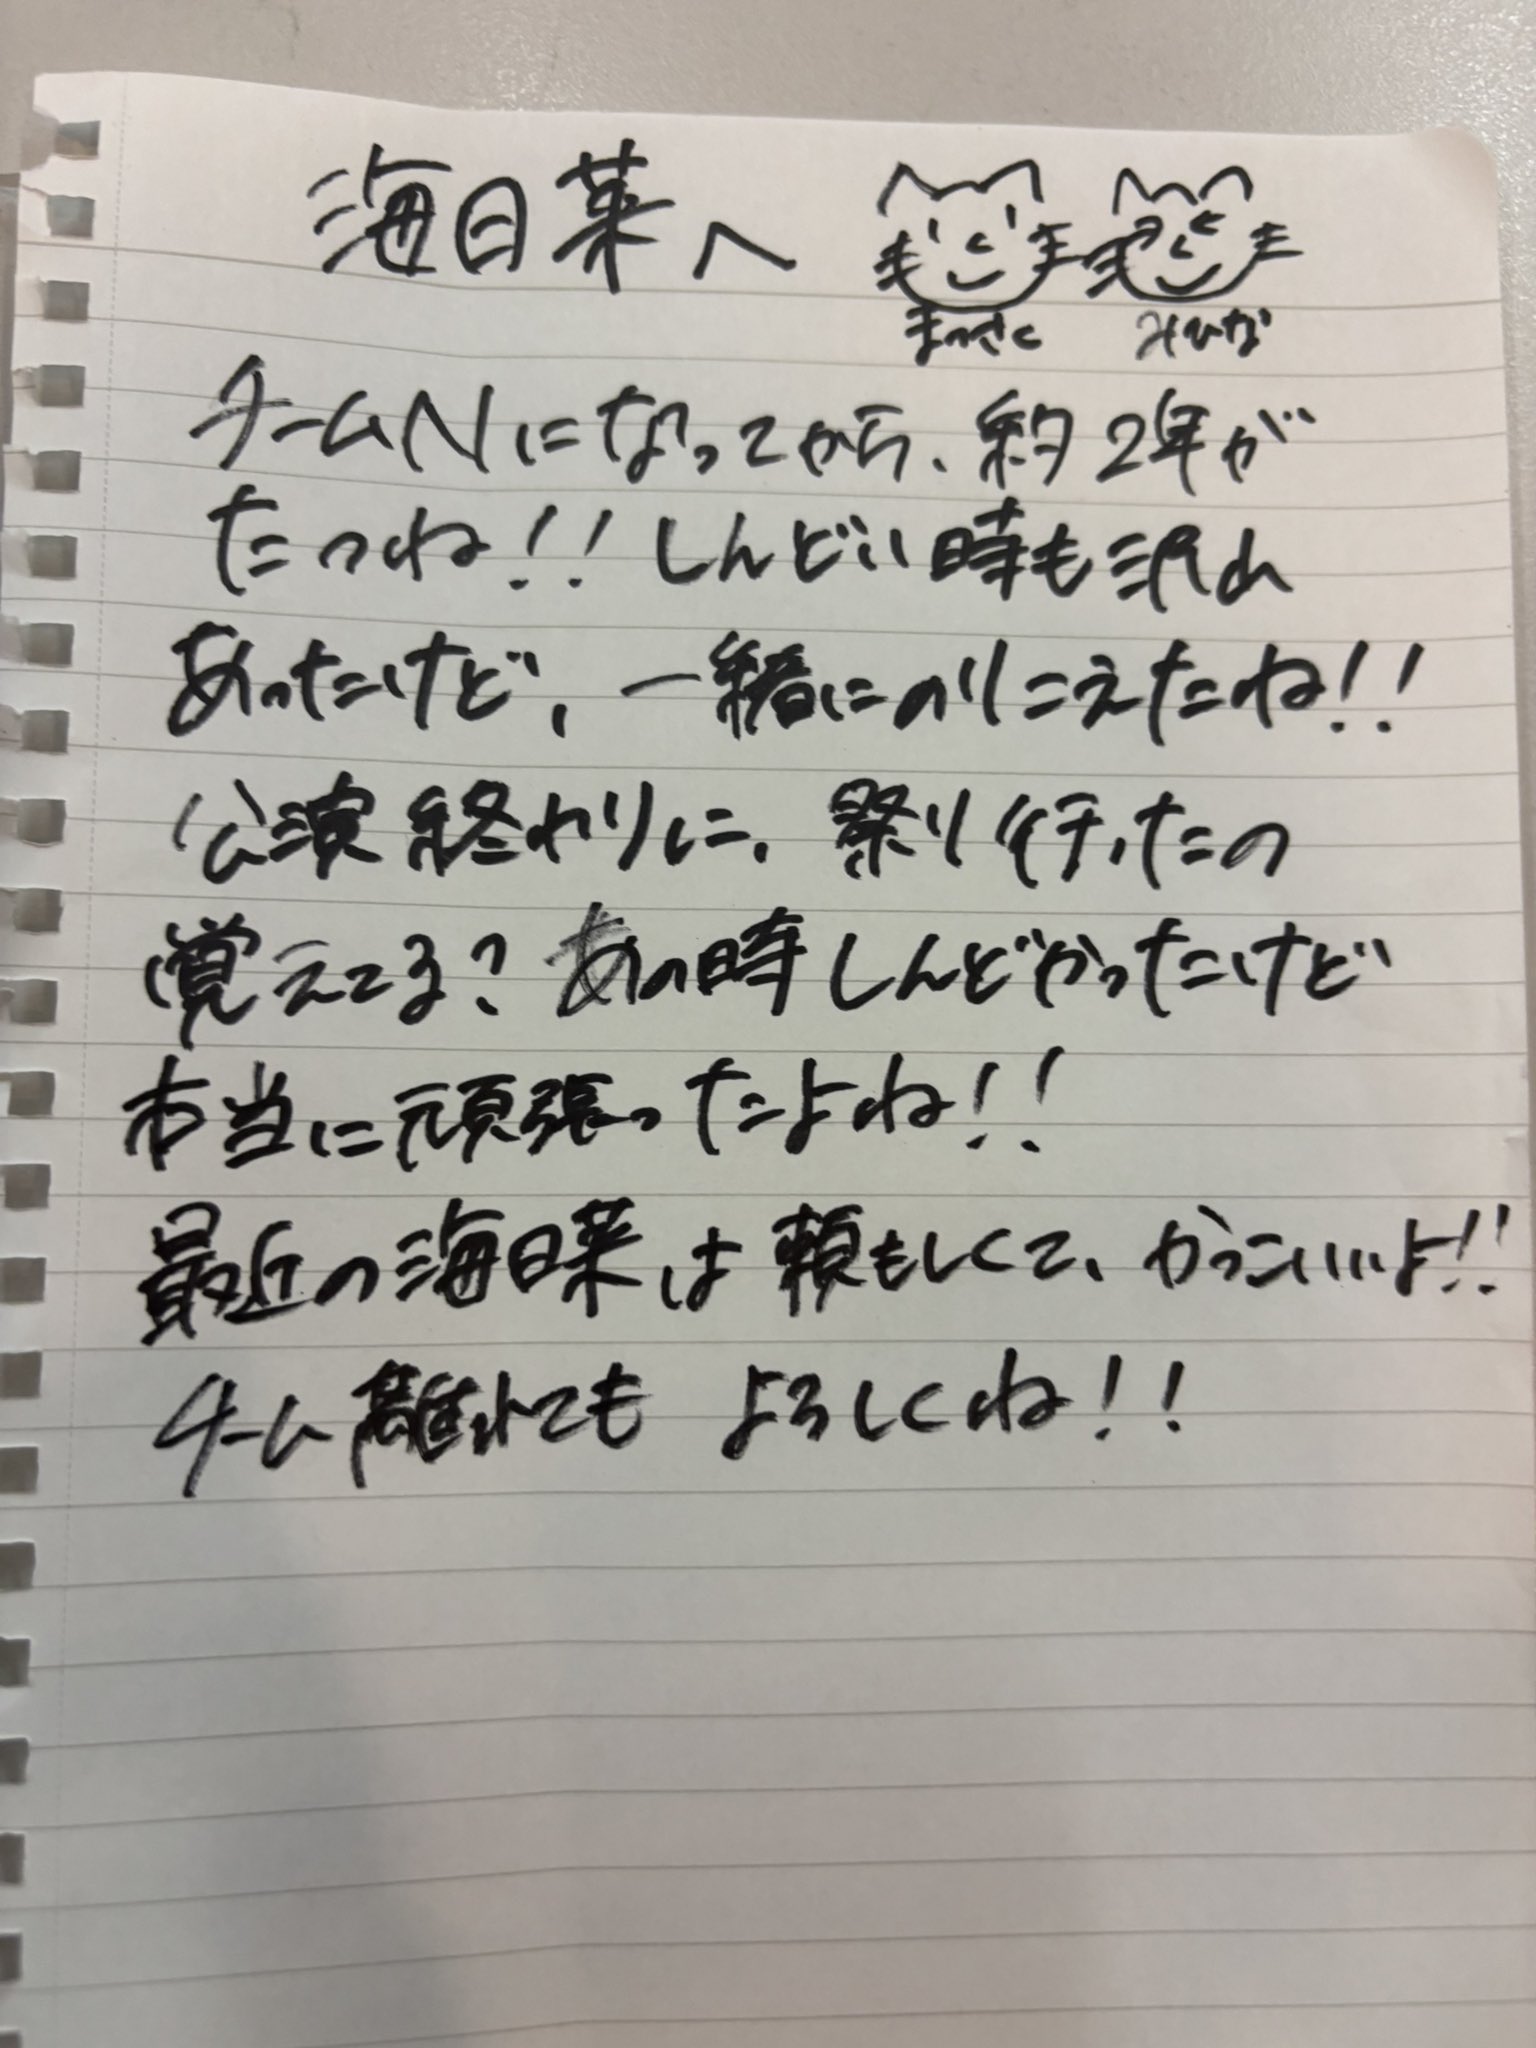 海日菜へ
まっさく みひな
チームNになってから、約2年が
たつね!!しんどい時も沢山
あったけど、一緒にのりこえたね!!
公演終わりに、祭り行ったの
覚えてる?あの時しんどかったけど
本当に頑張ったよね!!
最近の海日菜は頼もしくて、かっこいいよ!!
チーム離れてもよろしくね!!